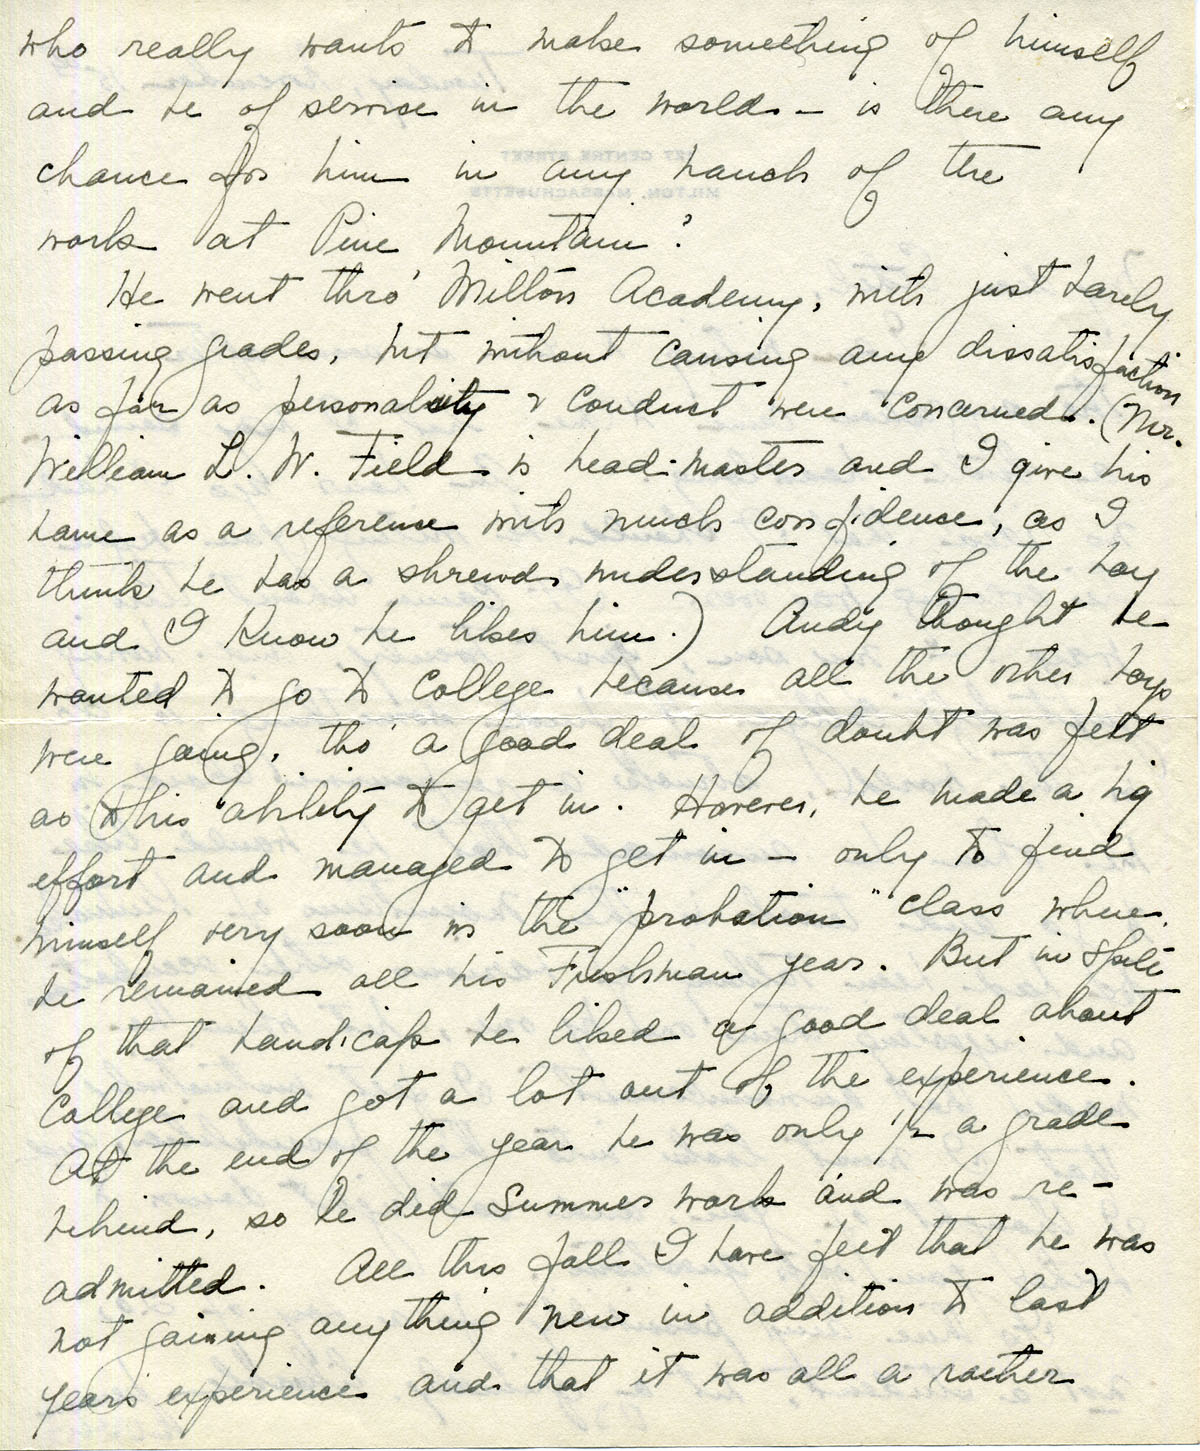 who really wants to make something of himself
and be of service in the world — is there any
chance for him in any branch of the
work at Pine Mountain?
He went thro' Milton Academy, with just barely
passing grades, but without causing any dissatisfaction
as far as personality & conduct were concerned. (Mr.
William L. W. Field is head-master and I give his
name as a reference with much confidence, as I
think he has a shrewd understanding of the boy
and I know he likes him.) Andy thought he
wanted to go to college because all the other boys
were going, tho' a good deal of doubt was felt
as to his ability to get in. However, he made a big
effort and managed to get in — only to find
himself very soon in the "probation" class where
he remained all his Freshman year. But in spite
of that handicap he liked a good deal about
College and got a lot out of the experience.
At the end of the year he was only 1/2 a grade
behind, so he did Summer work and was re-
admitted. All this fall I have felt that he was
not gaining anything new in addition to last
years experience and that it was all a rather
CENTRE STREET
MILTON, MASSACHUSETTS